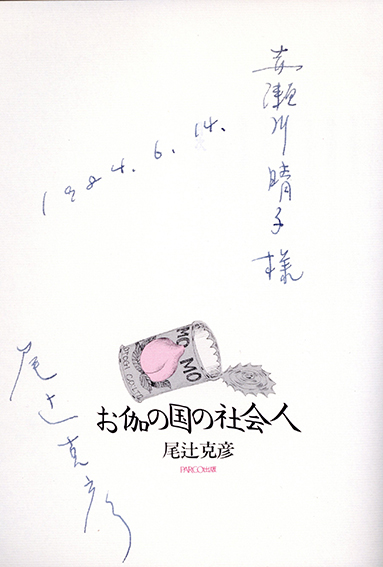 赤瀬川晴子様
1984.6.14.
尾辻克彦
MOMO
お伽の国の社会人
尾辻克彦
PARCO出版